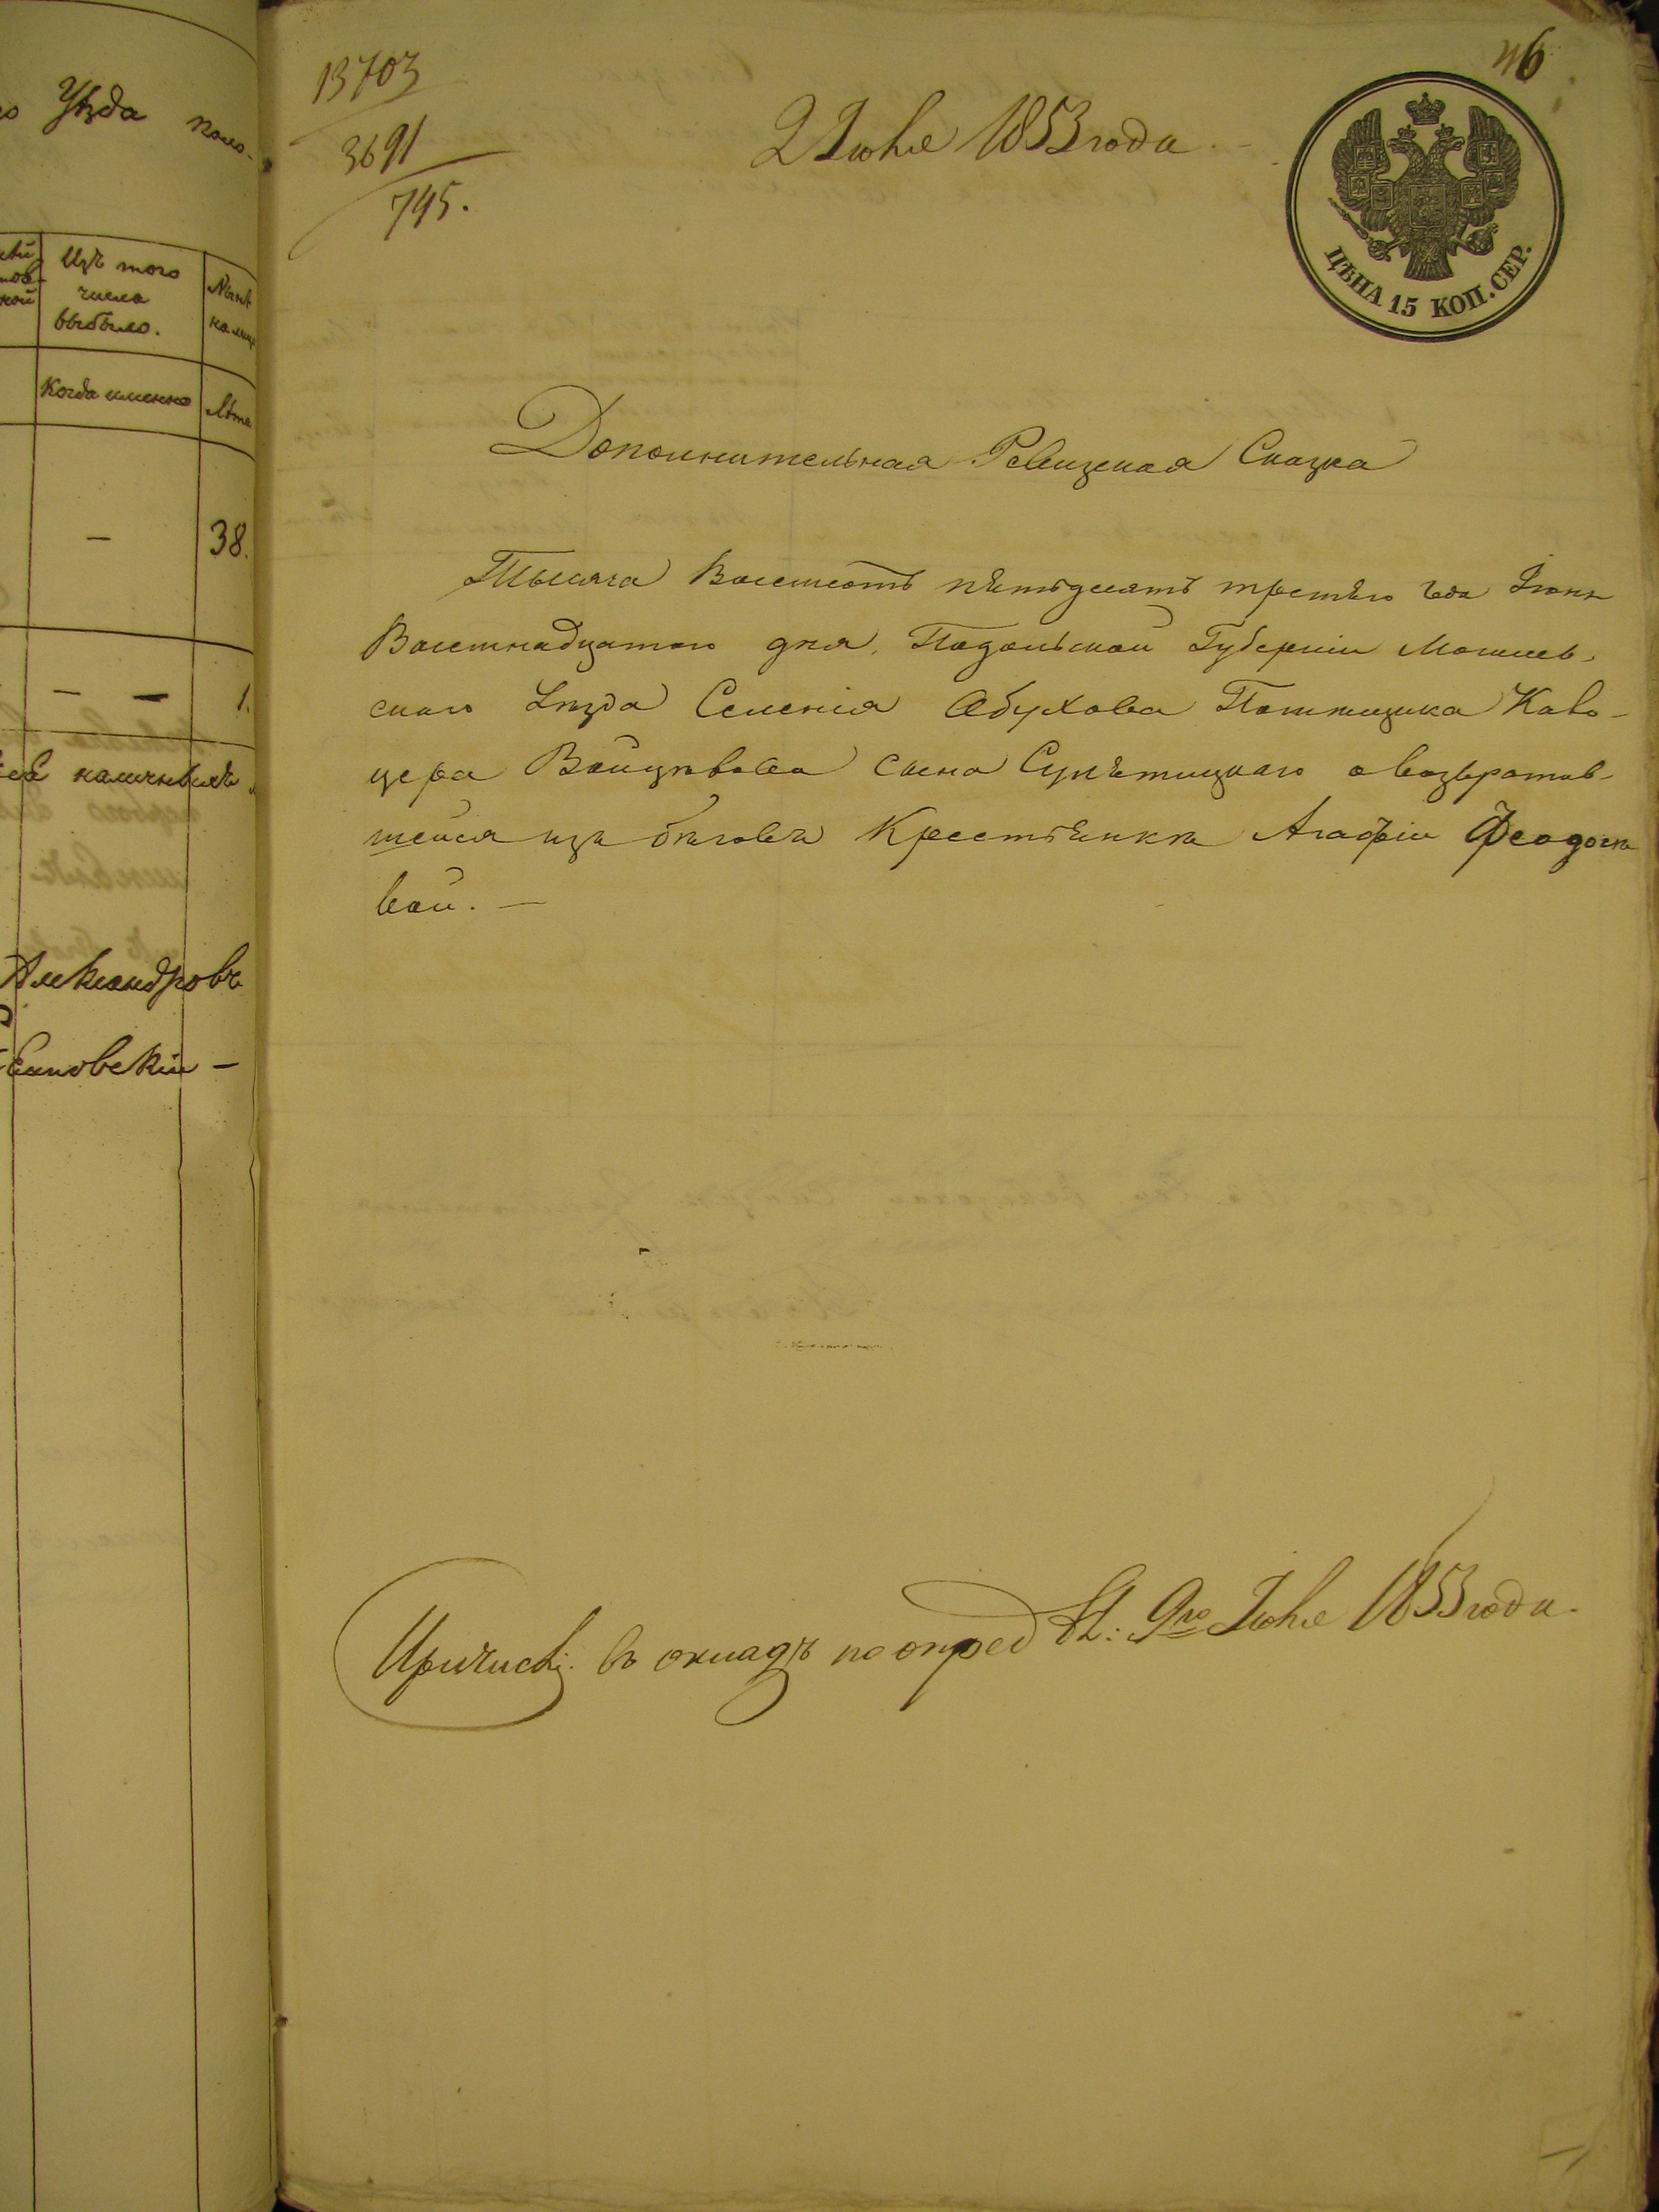 Уѣзда поме-
Изъ того
числа
выбыло.
Когда именно
Лѣта
—
38.
— —
1.
наличныхъ
Александровъ
13703
3691
745.
46
2 Июня 1853 года.
ЦѢНА 15 КОП. СЕР.
Дополнительная Ревизская Сказка
Тысяча Восемсотъ пятьдесятъ третьяго года Іюня
Восемнадцатого дня, Подольской Губерніи Могилев-
скаго Уѣзда Селенія Обухова Помѣщика Каво-
цера Войцѣхова сына Сулятицкаго о возвратив-
шейся изъ бѣговъ Крестьянкѣ Агафіи Феодось
вой. —
Причисл. въ окладъ по опред 9го Июня 1853 года.